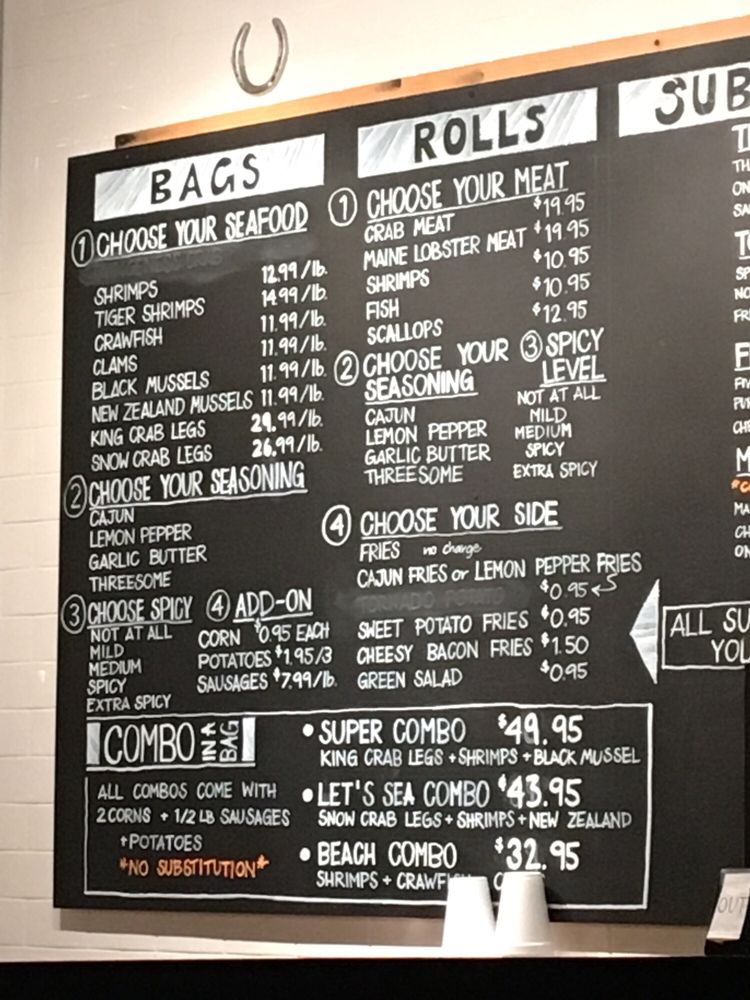 BAGS
1 CHOOSE YOUR SEAFOOD
SHRIMPS 12.99/lb.
TIGER SHRIMPS 14.99/lb.
CRAWFISH 11.99/lb.
CLAMS 11.99/lb.
BLACK MUSSELS 11.99/lb.
NEW ZEALAND MUSSELS 11.99/lb.
KING CRAB LEGS 29.99/lb.
SNOW CRAB LEGS 26.99/lb.
2 CHOOSE YOUR SEASONING
CAJUN
LEMON PEPPER
GARLIC BUTTER
THREESOME
3 CHOOSE SPICY
NOT AT ALL
MILD
MEDIUM
SPICY
EXTRA SPICY
4 ADD-ON
CORN $0.95 EACH
POTATOES $1.95/3
SAUSAGES $7.99/lb.
ROLLS
1 CHOOSE YOUR MEAT
CRAB MEAT $19.95
MAINE LOBSTER MEAT $19.95
SHRIMPS $10.95
FISH $10.95
SCALLOPS $12.95
2 CHOOSE YOUR
SEASONING
CAJUN
LEMON PEPPER
GARLIC BUTTER
THREESOME
3 SPICY
LEVEL
NOT AT ALL
MILD
MEDIUM
SPICY
EXTRA SPICY
4 CHOOSE YOUR SIDE
FRIES no charge
CAJUN FRIES or LEMON PEPPER FRIES
$0.95
TORNADO POTATO
SWEET POTATO FRIES $0.95
CHEESY BACON FRIES $1.50
GREEN SALAD $0.95
COMBO IN A BAG
ALL COMBOS COME WITH
2 CORNS + 1/2 LB SAUSAGES
+POTATOES
*NO SUBSTITUTION*
• SUPER COMBO $49.95
KING CRAB LEGS + SHRIMPS + BLACK MUSSEL
• LET'S SEA COMBO $43.95
SNOW CRAB LEGS + SHRIMPS + NEW ZEALAND
• BEACH COMBO $32.95
SHRIMPS + CRAWFI
SUB
ALL SU
YOU
OUT